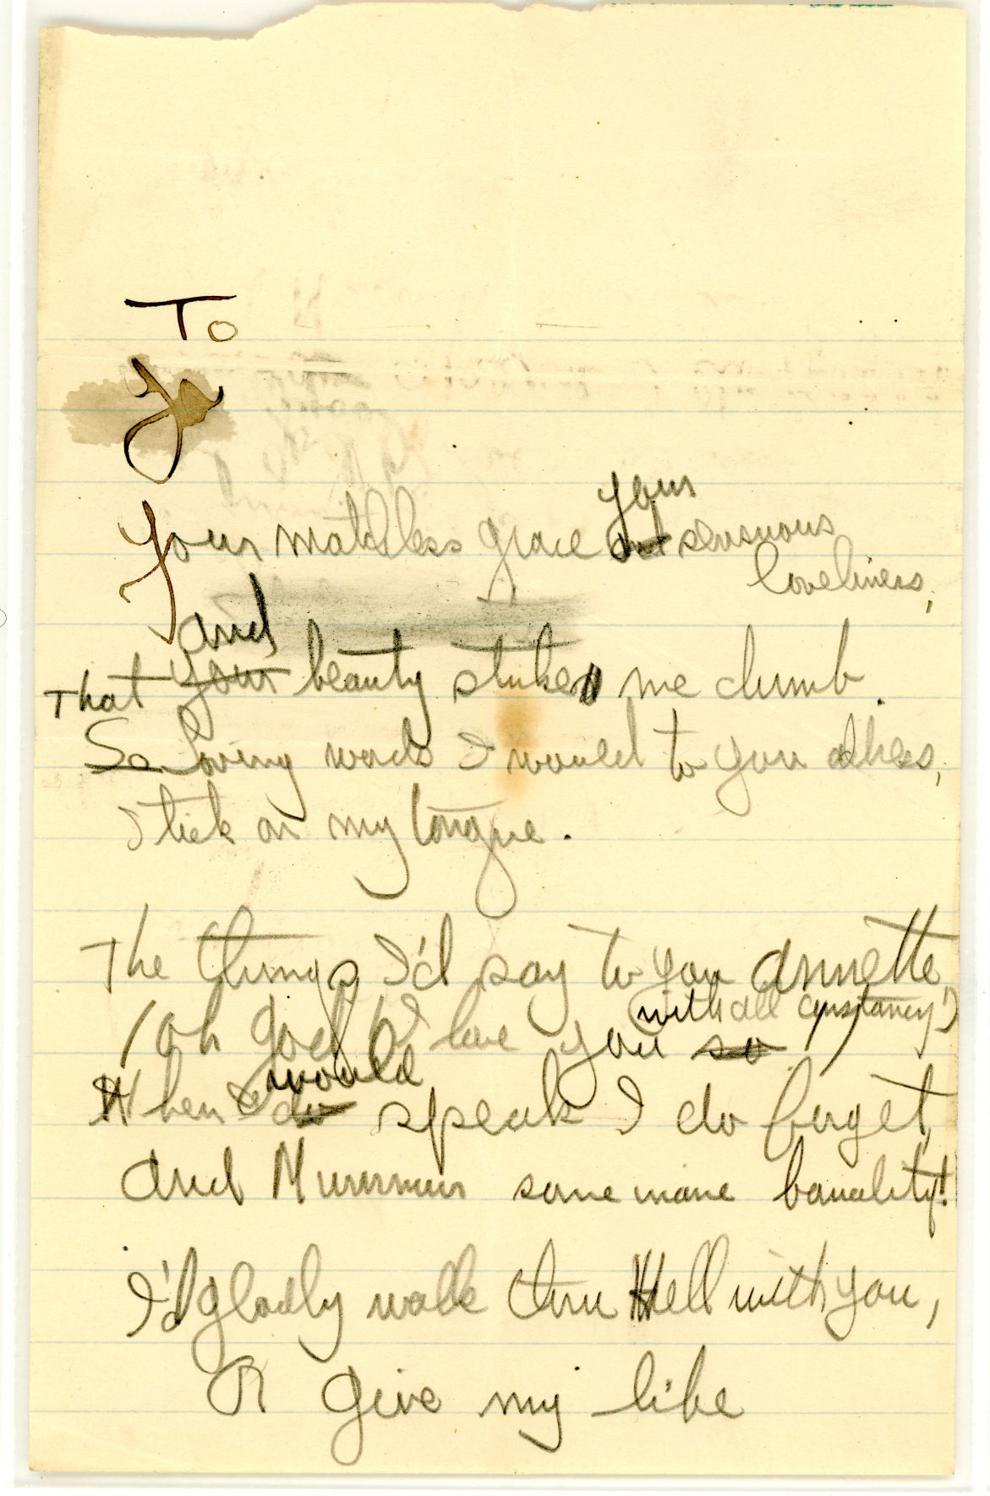 To
Jo
Your matchless grace your and sensuous
loveliness,
and
That your beauty strikes me dumb.
So loving words I would to you
stick on my tongue.
The things I'd say to you Annette,
(with all constancy!)
(oh god! I love you so)
would
When I do speak I do forget,
And Murmur some inane banality!
I'd gladly walk thru Hell with you,
Or give my life